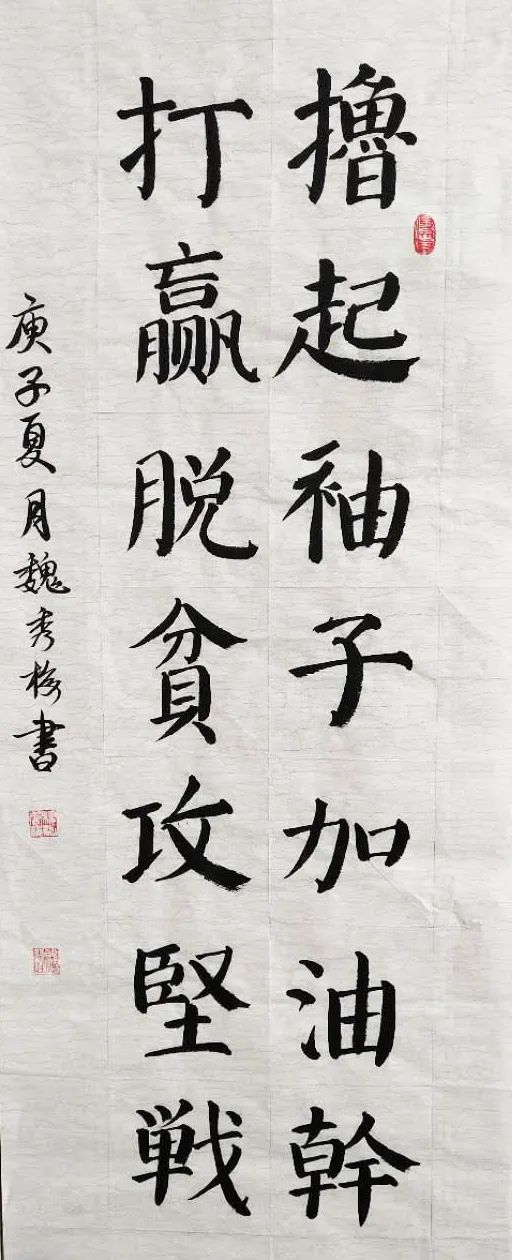 擼起袖子加油幹
打赢脱貧攻堅戦
庚子夏月魏秀梅書